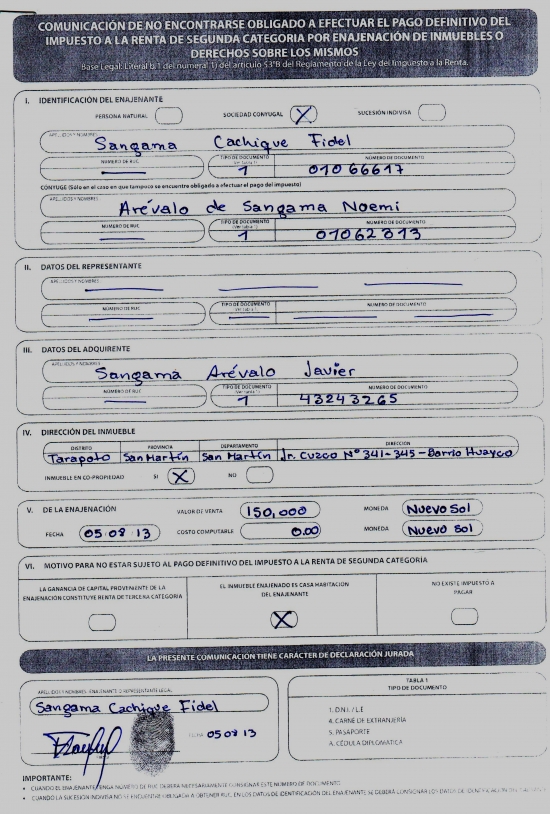 COMUNICACIÓN DE NO ENCONTRARSE OBLIGADO A EFECTUAR EL PAGO DEFINITIVO DEL
IMPUESTO A LA RENTA DE SEGUNDA CATEGORIA POR ENAJENACIÓN DE INMUEBLES O
DERECHOS SOBRE LOS MISMOS
Base Legal: Literal b.1 del numeral 1) del artículo 53°B del Reglamento de la Ley del Impuesto a la Renta.
I. IDENTIFICACIÓN DEL ENAJENANTE
PERSONA NATURAL SOCIEDAD CONYUGAL X SUCESIÓN INDIVISA
APELLIDOS Y NOMBRES
Sangama Cachique Fidel
NÚMERO DE RUC TIPO DE DOCUMENTO (Ver tabla 1) NÚMERO DE DOCUMENTO
1 01066617
CONYUGE (Sólo en el caso en que tampoco se encuentre obligado a efectuar el pago del impuesto)
APELLIDOS Y NOMBRES
Arévalo de Sangama Noemi
NÚMERO DE RUC TIPO DE DOCUMENTO (Ver tabla 1) NÚMERO DE DOCUMENTO
1 01062013
II. DATOS DEL REPRESENTANTE
APELLIDOS Y NOMBRES
NÚMERO DE RUC TIPO DE DOCUMENTO (Ver tabla 1) NÚMERO DE DOCUMENTO
III. DATOS DEL ADQUIRENTE
APELLIDOS Y NOMBRES
Sangama Arévalo Javier
NÚMERO DE RUC TIPO DE DOCUMENTO (Ver tabla 1) NÚMERO DE DOCUMENTO
1 43243265
IV. DIRECCIÓN DEL INMUEBLE
DISTRITO PROVINCIA DEPARTAMENTO DIRECCIÓN
Tarapoto San Martín San Martín Jr. Cuzco N° 341-345 - Barrio Huayco
INMUEBLE EN CO-PROPIEDAD SI X NO
V. DE LA ENAJENACIÓN VALOR DE VENTA 150,000 MONEDA Nuevo Sol
FECHA 05 08 13 COSTO COMPUTABLE 0.00 MONEDA Nuevo Sol
VI. MOTIVO PARA NO ESTAR SUJETO AL PAGO DEFINITIVO DEL IMPUESTO A LA RENTA DE SEGUNDA CATEGORÍA
LA GANANCIA DE CAPITAL PROVENIENTE DE LA EL INMUEBLE ENAJENADO ES CASA HABITACION NO EXISTE IMPUESTO A
ENAJENACIÓN CONSTITUYE RENTA DE TERCERA CATEGORÍA DEL ENAJENANTE PAGAR
X
LA PRESENTE COMUNICACIÓN TIENE CARÁCTER DE DECLARACIÓN JURADA
APELLIDOS Y NOMBRES ENAJENANTE O REPRESENTANTE LEGAL
Sangama Cachique Fidel
FECHA 05 08 13
TABLA 1
TIPO DE DOCUMENTO
1. D.N.I. / L.E
4. CARNÉ DE EXTRANJERÍA
5. PASAPORTE
A. CÉDULA DIPLOMATICA
IMPORTANTE:
• CUANDO EL ENAJENANTE TENGA NÚMERO DE RUC DEBERÁ NECESARIAMENTE CONSIGNAR ESTE NÚMERO DE DOCUMENTO
• CUANDO LA SUCESIÓN INDIVISA NO SE ENCUENTRE OBLIGADO A OBTENER RUC, EN LOS DATOS DE IDENTIFICACIÓN DEL ENAJENANTE SE DEBERÁ CONSIGNAR LOS DATOS DE IDENTIFICACIÓN DEL